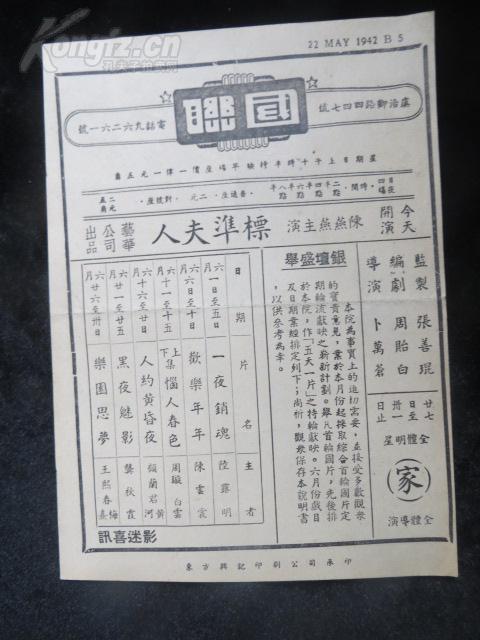 Kongfz.cn
孔夫子拍卖网
22 MAY 1942 B 5
國聯
虞洽卿路四四七號
電話九六二六一號
星期日上午十時半特映早場座價一律一元五角
每日四場
時間・二點 四點 六點 八點
普通座・二元
對號座・
今天開演
陳燕燕主演
標準夫人
藝華公司出品
監製 張善琨
編劇 周貽白
導演 卜萬蒼
廿七日至卅一日止
全體明星
家
全體導演
銀壇盛舉
本院為事實上的迫切需要，並接受多數觀衆
的寶貴意見，業於本月份起採取綜合首輪國片定
期輪流獻映之新計劃。舉凡首輪國片，先後排
於本院，作「五天一片」之特輪獻映。六月份戲目
及日期業經排定列下；尚祈，觀衆保存本說明書
，以供參考為幸。
日期 片名 主演者
六月一日至五日 一夜銷魂 陸露明
六月六日至十日 歡樂年年 陳雲裳
六月十一至十五 上下集 惱人春色 周璇 白雲
六月十六至廿日 人約黃昏後 顧蘭君 黃河
六月廿一至廿五 黑夜魅影 龔秋霞
六月廿六至卅日 樂園思夢 王熙春 梅熹
影迷喜訊
東方興記印刷公司承印